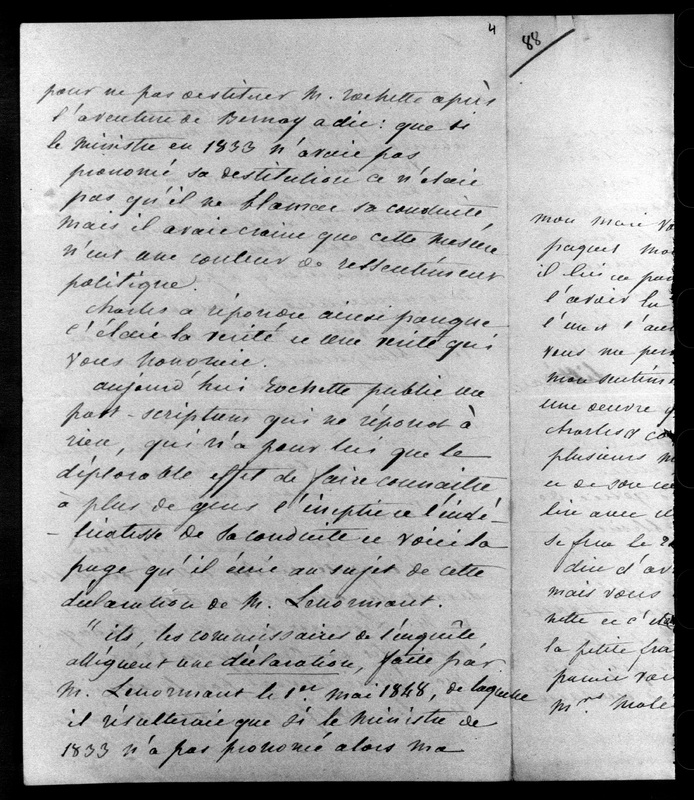 4
88
pour ne pas destituer M. rochette après
l'aventure de Bernay a dit: que si
le ministre en 1833 n'avait pas
prononcé sa destitution ce n'était
pas qu'il ne blamat sa conduite
mais il avait craint que cette mesure
n'eut une couleur de ressentiment
politique.
Charles a répondu ainsi parceque
c'était la verité et une verité qui
vous honorait.
aujourd'hui Rochette publie un
post-scriptum qui ne répond à
rien, qui n'a pour lui que le
déplorable effet de faire connaitre
à plus de gens l'ineptie et l'indé-
-licatesse de sa conduite et voici la
page qu'il écrit au sujet de cette
déclaration de M. Lenormant.
"ils, les commissaires de l'enquête
allèguent une déclaration, faite par
M. Lenormant le 1er mai 1848, de laquelle
il résulterait que si le ministre de
1833 n'a pas prononcé alors ma
mon mari
paquet
il lui
l'avoir lu
l'un
vous me
mon
une oeuvre
Charles
plusieurs
et de son
lire avec
se
dire d'
mais vous
nette et c'
la petite
Mme